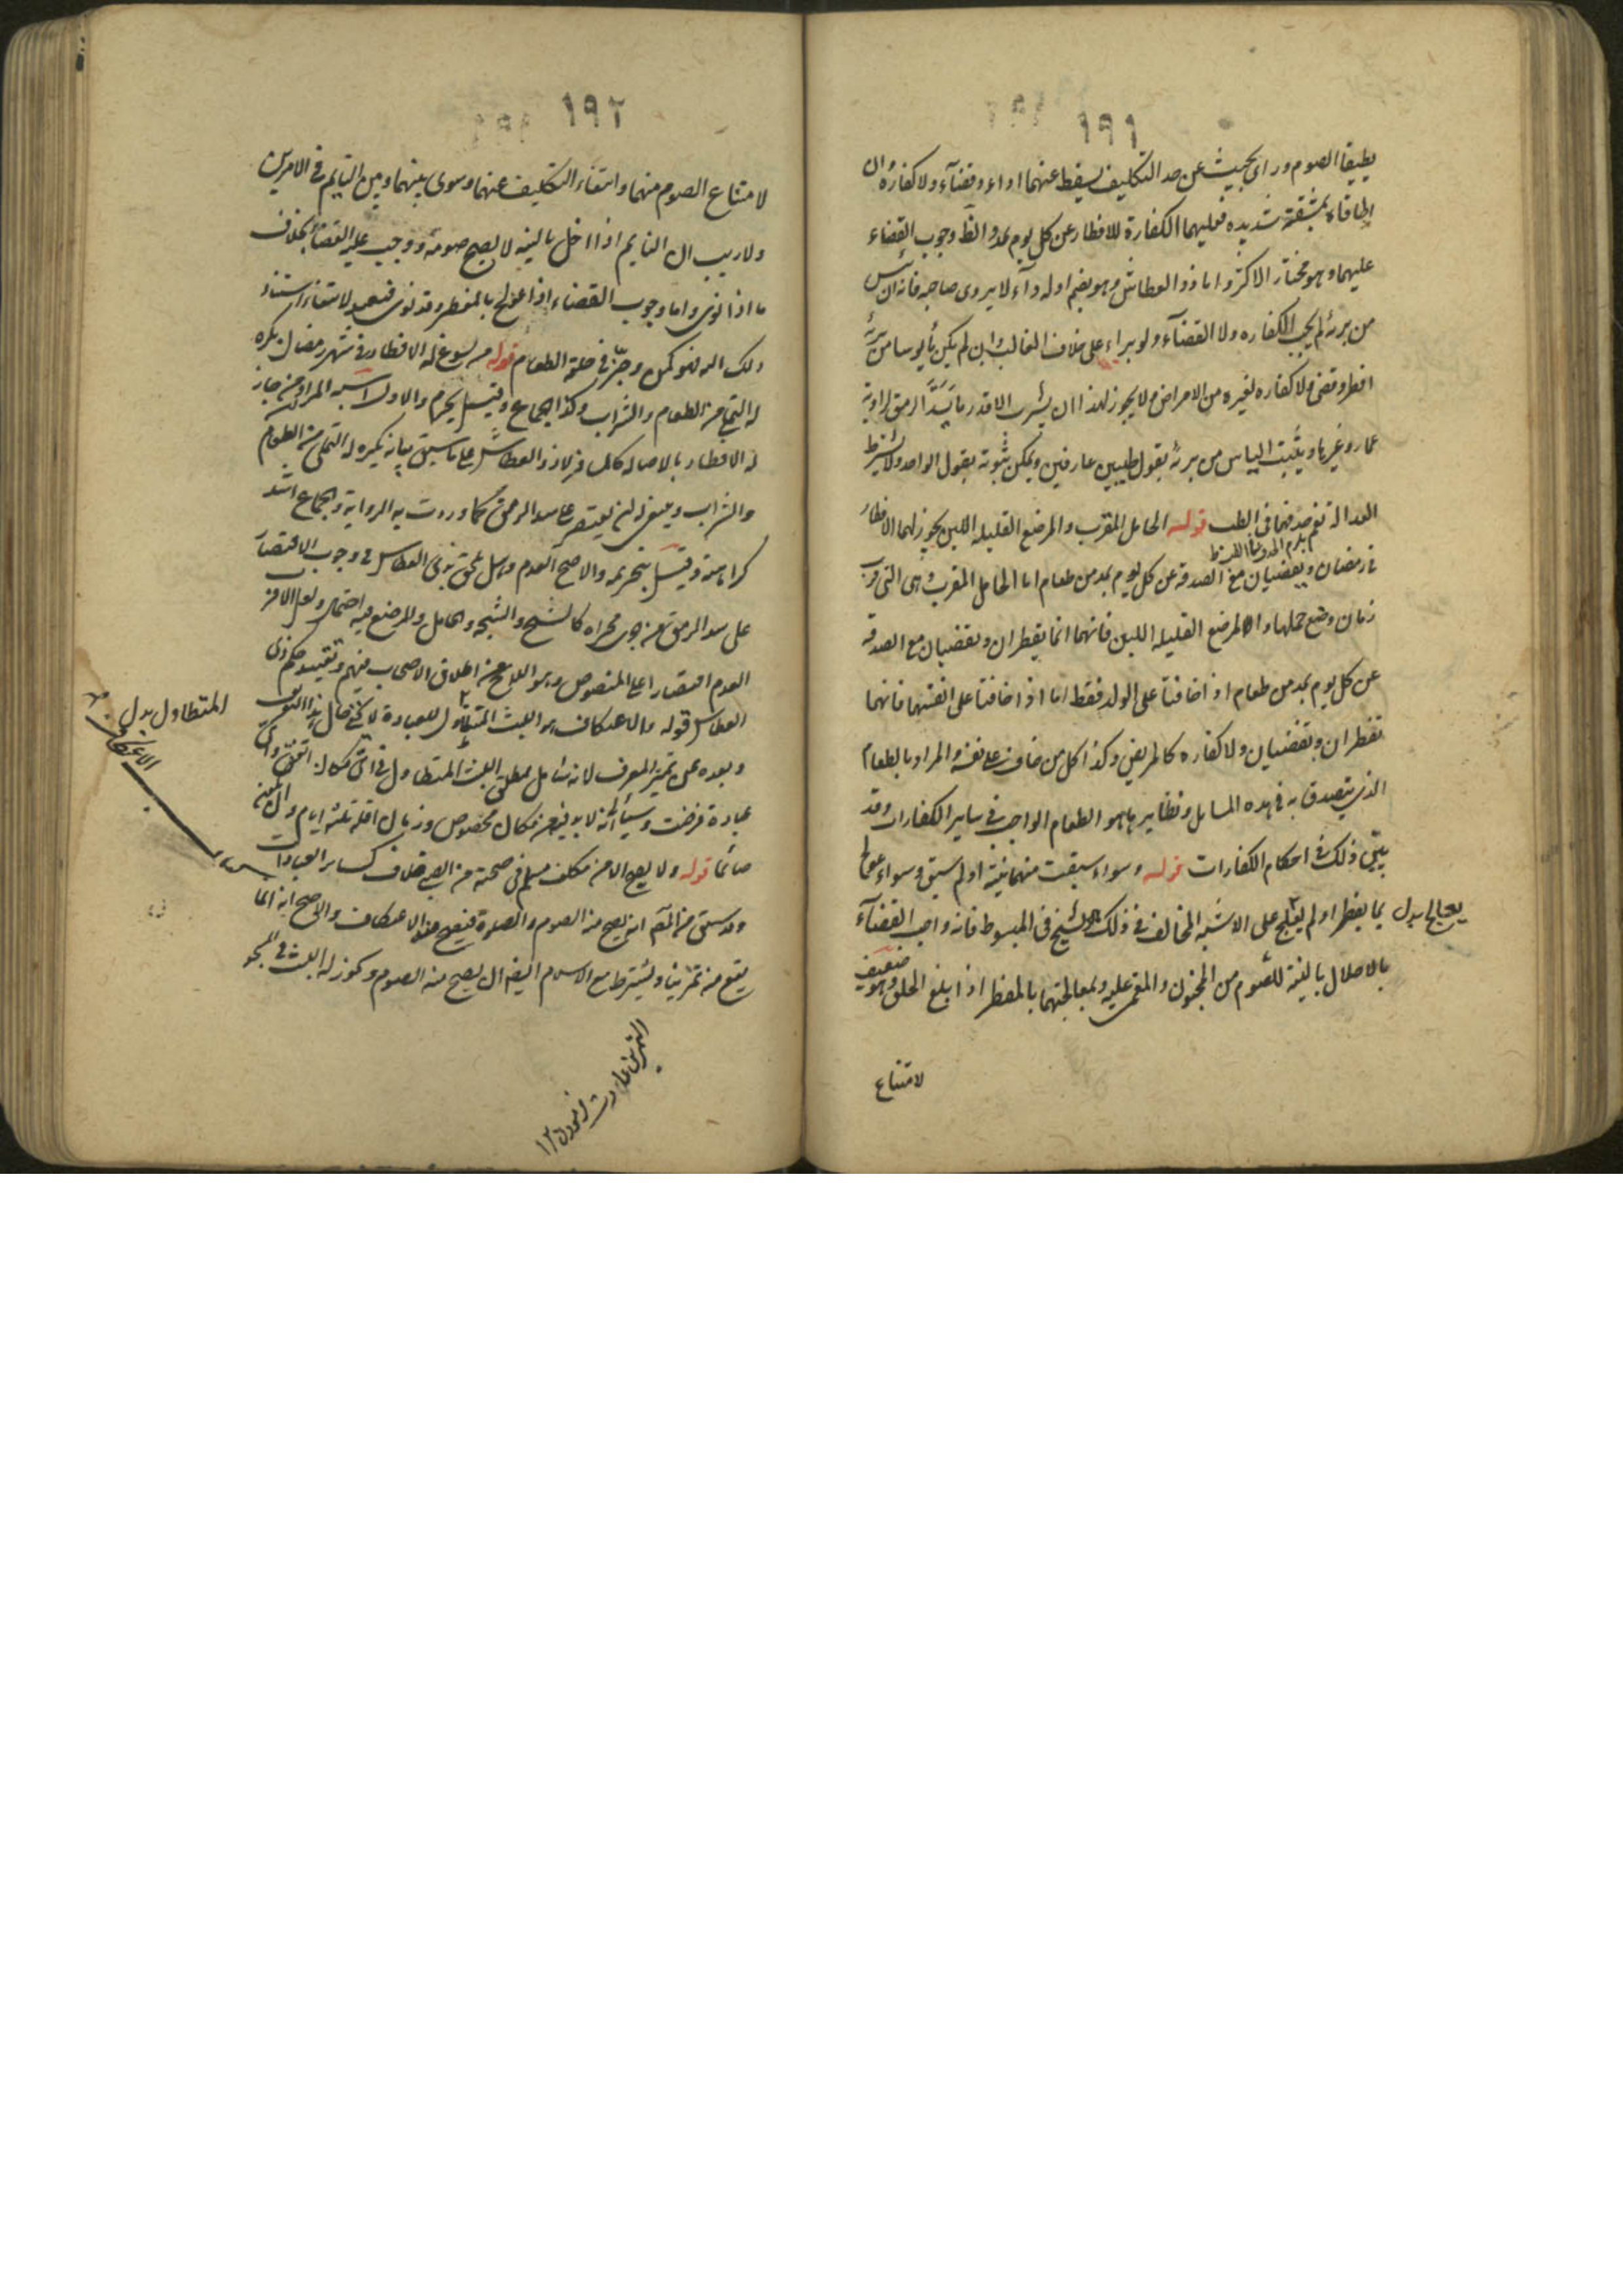 ١٩١
يطيقا الصوم وراى بحيث عن حد التكليف يسقط عنهما اداء وقضآء ولا كفاره وان
اطاقاه بمشقة شديده فعليهما الكفارة للافطار عن كل يوم بمد والظ وجوب القضاء
عليهما وهو مختار الاكثر واما ذو العطاش وهو بضم اوله دآء لا يروى صاحبه فانه ان يئس
من برئه لم يجب الكفاره ولا القضآء ولو براء على خلاف الغالب وان لم يكن مأيوسا من برئه
افطر وقضى ولا كفاره لغيره من الامراض ولا يجوز لهذا ان يشرب الا قدر ما يسد الرمق لرواية
عمار وغيرها ويثبت الياس من برئه بقول طبيبين عارفين ويمكن ثبوته بقول الواحد ولا يشترط
العدالة نعم حذقهما فى الطب قوله الحامل المقرب والمرضع القليله اللبن يجوز لهما الافطار
فى رمضان ويقضيان مع الصدقة عن كل يوم بمد من طعام اما الحامل المقرب وهى التى قرب
زمان وضع حملها والمرضع القليله اللبن فانهما انما يفطران ويقضيان مع الصدقه
عن كل يوم بمد من طعام اذا خافتا على الولد فقط اما اذا خافتا على انفسهما فانهما
تفطران وتقضيان ولا كفاره كالمريض وكذا كل من خاف على نفسه والمراد بالطعام
الذى يتصدق به فى هذه المسايل ونظايرها هو الطعام الواجب فى ساير الكفارات وقد
بينى ذلك فى احكام الكفارات قوله وسواء سبقت منهما نية او لم يسبق وسواء عولجا
بما يفطر او لم يعالج على الاشبه المخالف فى ذلك الشيخ فى المبسوط فانه واجب القضآء
يعالجا بدل
بالاخلال بالنية للصوم من المجنون والمغمى عليه وبمعالجتهما بالمفطر اذا بلغ الحلق وهو ضعيف
لامتناع
١٩٢
لامتناع الصوم منهما وانتفاء التكليف عنهما وسوى بينهما وبين النايم فى الامرين
ولا ريب ان النايم اذا اخل بالنيه لا يصح صومه ووجب عليه القضا بخلاف
ما اذا نوى واما وجوب القضاء اذا عولج بالمفطر وقد نوى فبعيد لانتفاء استناد
ذلك اليه فهو كمن وجر فى حلقه الطعام قوله من يسوغ له الافطار فى شهر رمضان يكره
له التملى من الطعام والشراب وكذا الجماع وقيل يحرم والاول اشبه المراد من جاز
له الافطار بالاصاله كالمسافر لا ذو العطاش على ما سبق بيانه يكره له التملى من الطعام
والشراب وينبغى ان يقتصر على سد الرمق كما وردت به الرواية والجماع اشد
كراهة وقيل بتحريمه والاصح العدم وهل يلحق بذى العطاش فى وجوب الاقتصار
على سد الرمق من جرى مجراه كالشيخ والشيخه والحامل والمرضع فيه احتمال ولعل الاقرب
العدم اقتصارا على المنصوص وهو اللايح من اطلاق الاصحاب فيهم وتقييد حكم ذى
العطاش قوله والاعتكاف هو اللبث المتطاول للعبادة لا يخفى حال هذا التعريف
وبعده عن تميز المعرف لانه شامل لمطلق اللبث المتطاول فى اى مكان اتفق واى
عبادة فرضت وسيأتى انه لا بد فيه من مكان مخصوص وزمان اقله ثلثة ايام
صائما قوله ولا يصح الا من مكلف مسلم فى صحته من الصبى خلاف كساير العبادات
وقد سبق انه يصح منه الصوم والصلوة فيصح منه الاعتكاف والاصح انه انما
يقع منه تمرينا ويشترط مع الاسلام ايضا ان يصح منه الصوم ويجوز له اللبث فى المسجد
المتطاول بدل
الاعتكاف